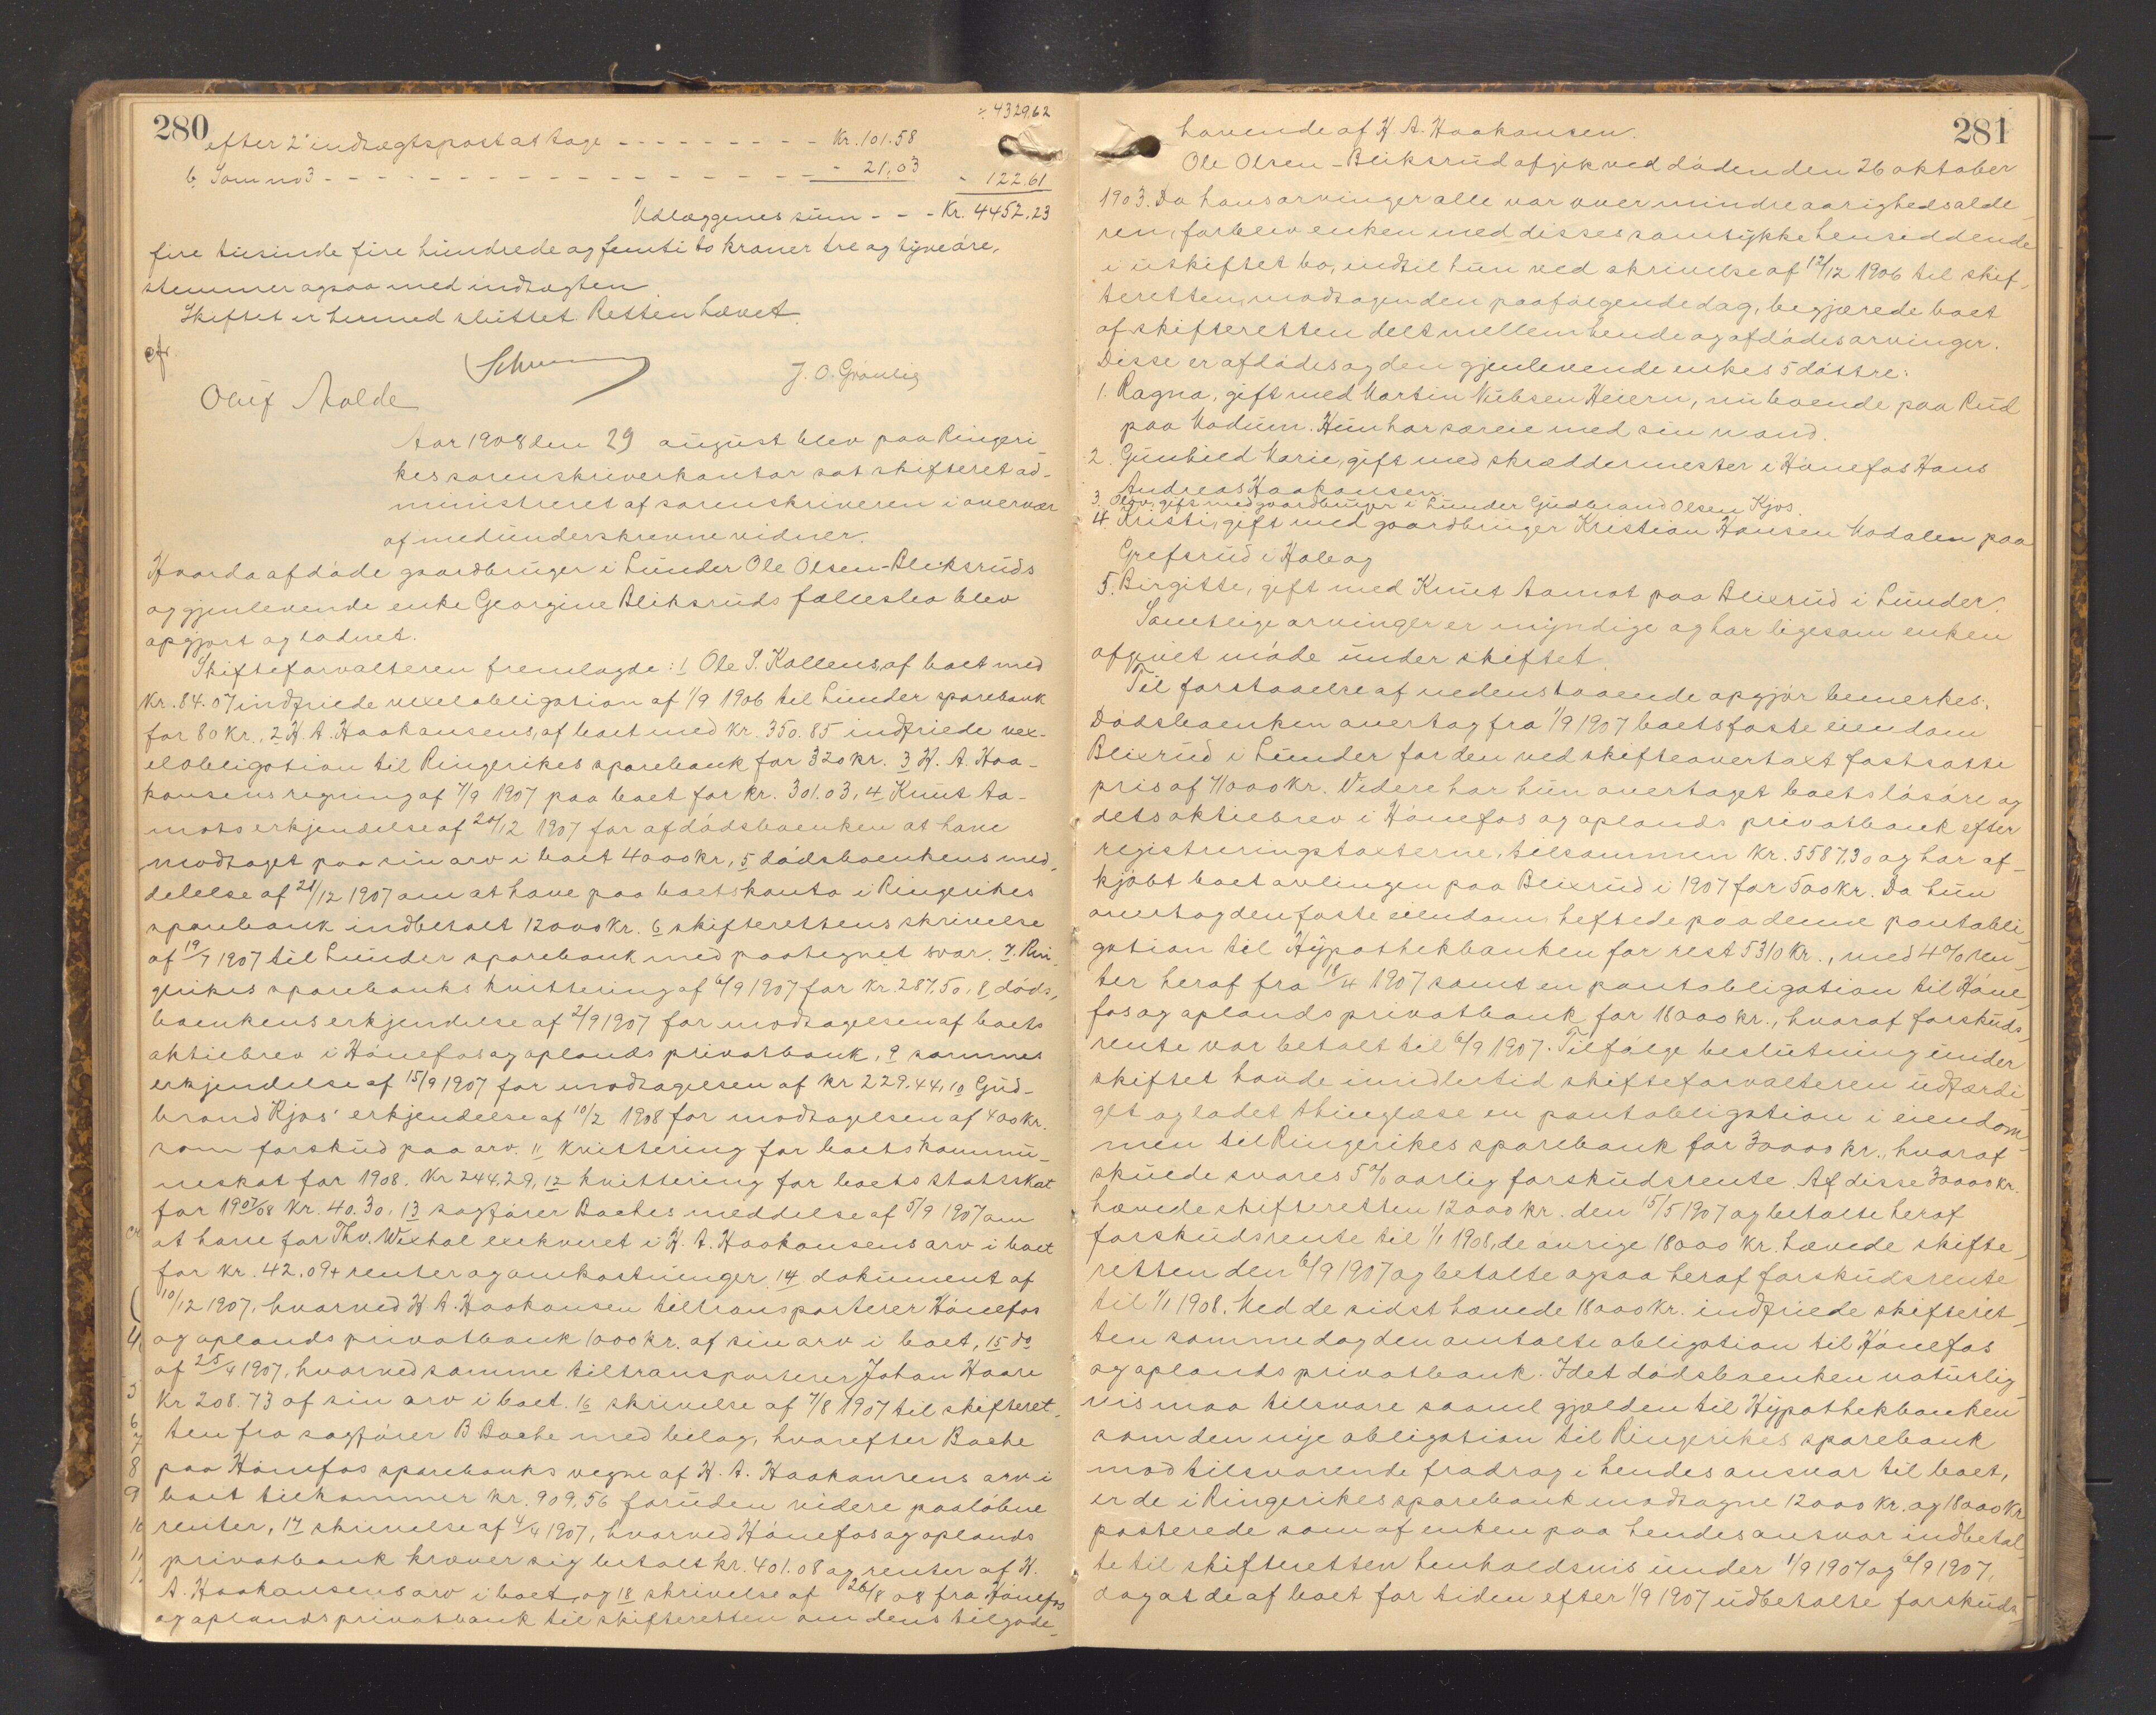 280
÷ 4329.62
efter 2' indtægtspost at tage - - - - - - - - - Kr. 101.58
b, Som no 3 - - - - - - - - - - - - - - - - " 21,03 - 122.61
Udlæggenes sum - - - Kr. 4452.23
fire tusinde fire hundrede og femti to kroner tre og tyve øre,
stemmer ogsaa med indtægten
Skiftet er hermed sluttet. Retten hævet.
cfr.
J. O. Gravlig
Oluf Molde
Aar 1908 den 29 august blev paa Ringeri
kes sorenskriverkontor sat skifteret ad-
ministreret af sorenskriveren i overvær
af medunderskrevne vidner.
Hvorda afdøde gaardbruger i Lunder Ole Olsen-Bliksruds
og gjenlevende enke Georgine Bliksruds fællesbo blev
opgjort og lodnet.
Skifteforvalteren fremlagde: 1 Ole P. Kollens, af boet med
Kr. 84.07 indfriede vexelobligation af 1/9 1906 til Lunder sparebank
for 80 kr., 2 H. A. Haakansens, af boet med kr. 350.85 indfriede vex-
elobligation til Ringerikes sparebank for 320 kr. 3 H. A. Haa-
kansens regning af 7/9 1907 paa boet for kr. 301.03, 4 Knut Aa-
mots erkjendelse af 20/12 1907 for af dødsboenken at have
modtaget paa sin arv i boet 4000 kr, 5 dødsboenkens med-
delelse af 21/12 1907 om at have paa boets konto i Ringerikes
sparebank indbetalt 12000 kr. 6 skifterettens skrivelse
af 19/7 1907 til Lunder sparebank med paategnet svar. 7 Rin
gerikes sparebanks kvittering af 6/9 1907 for kr. 287.50, 8 døds-
boenkens erkjendelse af 2/9 1907 for modtagelsen af boets
aktiebrev i Hønefos og oplands privatbank, 9 sammes
erkjendelse af 15/9 1907 for modtagelsen af kr 229.44, 10 Gud-
brand Kjos' erkjendelse af 10/2 1908 for modtagelsen af 400 kr.
som forskud paa arv. 11 kvittering for boets kommu-
neskat for 1908. Kr 244.29, 12 kvittering for boets statsskat
for 1907/08 Kr. 40.30, 13 sagfører Baches meddelse af 5/9 1907 om
at have for Thv. Wixhal exekveret i H. A. Haakansens arv i boet
for kr. 42.09 + renter og omkostninger. 14 dokument af
10/12 1907, hvorved H A. Haakansen tiltransporterer Hønefos
og oplands privatbank 1000 kr. af sin arv i boet, 15 do
af 25/4 1907, hvorved samme tiltransporterer Johan Haare
Kr 208.73 af sin arv i boet. 16 skrivelse af 7/8 1907 til skifteret-
ten fra sagfører B. Bache med bilag, hvorefter Bache
paa Hønefos sparebanks vegne af H. A. Haakansens arv i
boet tilkommer kr. 909,56 foruden videre paaløbne
renter, 17 skrivelse af 4/4 1907, hvorved Hønefos og oplands
privatbank kræver sig betalt kr. 401.08 og renter af H.
A. Haakansens arv i boet, og 18 skrivelse af 26/8 08 fra Hønefos
og oplands privatbank til skifteretten om dens tilgode-
281
havende af H. A. Haakansen.
Ole Olsen-Bliksrud afgik ved døden den 26 oktober
1903. Da hans arvinger alle var over mindreaarighedsalde-
ren, forblev enken med disses samtykke hensiddende
i uskiftet bo, indtil hun ved skrivelse af 12/12 1906 til skif-
teretten, modtagen den paafølgende dag, begjærede boet
af skifteretten delt mellem hende og afdødes arvinger.
Disse er afdødes og den gjenlevende enkes 5 døttre:
1. Ragna, gift med Martin Nubsen Heiern, nu boende paa Rud
paa Modum. Hun har særeie med sin mand.
2. Gunhild Marie, gift med skræddermester i Hønefos Hans
Andreas Haakansen.
3. Olava, gift med gaardbruger i Lunder Gudbrand Olsen Kjos.
4. Kristi, gift med gaardbruger Kristian Hansen Modalen paa
Grefsrud i Hole og
5. Birgitte, gift med Knut Aamot paa Blixrud i Lunder.
Samtlige arvinger er myndige og har ligesom enken
afgivet møde under skiftet.
Til forstaaelse af nedenstaaende opgjør bemerkes.
Dødsboenken overtog fra 1/9 1907 boets faste eiendom
Blixrud i Lunder for den ved skifteovertaxt fastsatte
pris af 41000 kr. Videre har hun overtaget boets løsøre og
dets aktiebrev i Hønefos og oplands privatbank efter
registreringstaxterne, tilsammen kr. 5587.30 og har af-
kjøbt boet avlingen paa Blixrud i 1907 for 500 kr. Da hun
overtog den faste eiendom heftede paa denne pantobli-
gation til Hypothekbanken for rest 5310 kr., med 4% ren-
ter heraf fra 18/4 1907 samt en pantobligation til Høne-
fos og oplands privatbank for 18000 kr., hvoraf forskuds-
rente var betalt til 6/9 1907. Tilfølge beslutning under
skiftet havde imidlertid skifteforvalteren udfærdi-
get og ladet thinglæse en pantobligation i eiendom-
men til Ringerikes sparebank for 30000 kr., hvoraf
skulde svares 5% aarlig forskudsrente. Af disse 30000 kr.
hævede skifteretten 12000 kr. den 15/5 1907 og betalte heraf
forskudsrente til 1/1 1908, de øvrige 18000 kr. hævede skifte-
retten den 6/9 1907 og betalte ogsaa heraf forskudsrente
til 1/1 1908. Med de sidst hævede 18000 kr. indfriede skifteret-
ten samme dag den omtalte obligation til Hønefos
og oplands privatbank. Idet dødsboenken naturlig-
vis maa tilsvare saavel gjælden til Hypothekbanken
som den nye obligation til Ringerikes sparebank
mod tilsvarende fradrag i hendes ansvar til boet,
er de i Ringerikes sparebank modtagne 12000 kr. og 18000 Kr
posterede som af enken paa hendes ansvar indbetal-
te til skifteretten henholdsvis under 1/9 1907 og 6/9 1907,
dog at de af boet for tiden efter 1/9 1907 udbetalte forskuds-